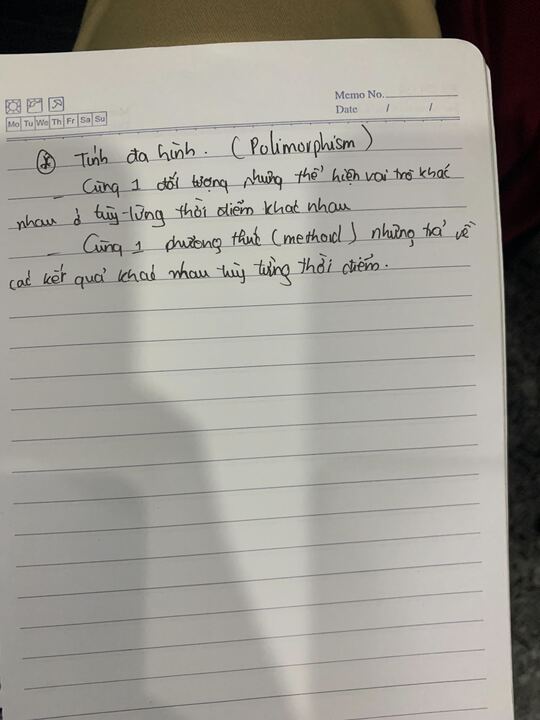 Memo No.
Mo Tu We Th Fr Sa Su
Date / /
Tính đa hình. (Polimorphism)
- Cùng 1 đối tượng nhưng thể hiện vai trò khác
nhau ở tùy từng thời điểm khác nhau
- Cùng 1 phương thức (method) nhưng trả về
các kết quả khác nhau tùy từng thời điểm.